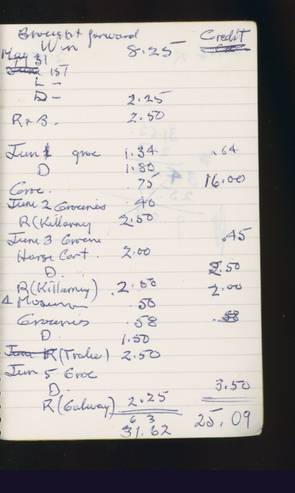 Brought forward Credit
W n 8.25
May 31
June 1st
L -
D - 2.25
R + B. 2.50
June 1 groc 1.34 .64
D 1.80
Groc. .75 16.00
June 2 Groceries .40
R (Killarney 2.50
June 3 Groc .45
Horse Cart. 2.00
D. 2.50
R (Killarney) 2.50 2.00
4 Museum .50
Groceries .58
D. 1.50
June R (Tralee) 2.50
June 5 Groc
D. 3.50
R (Galway) 2.25
6 3 25.09
31.62